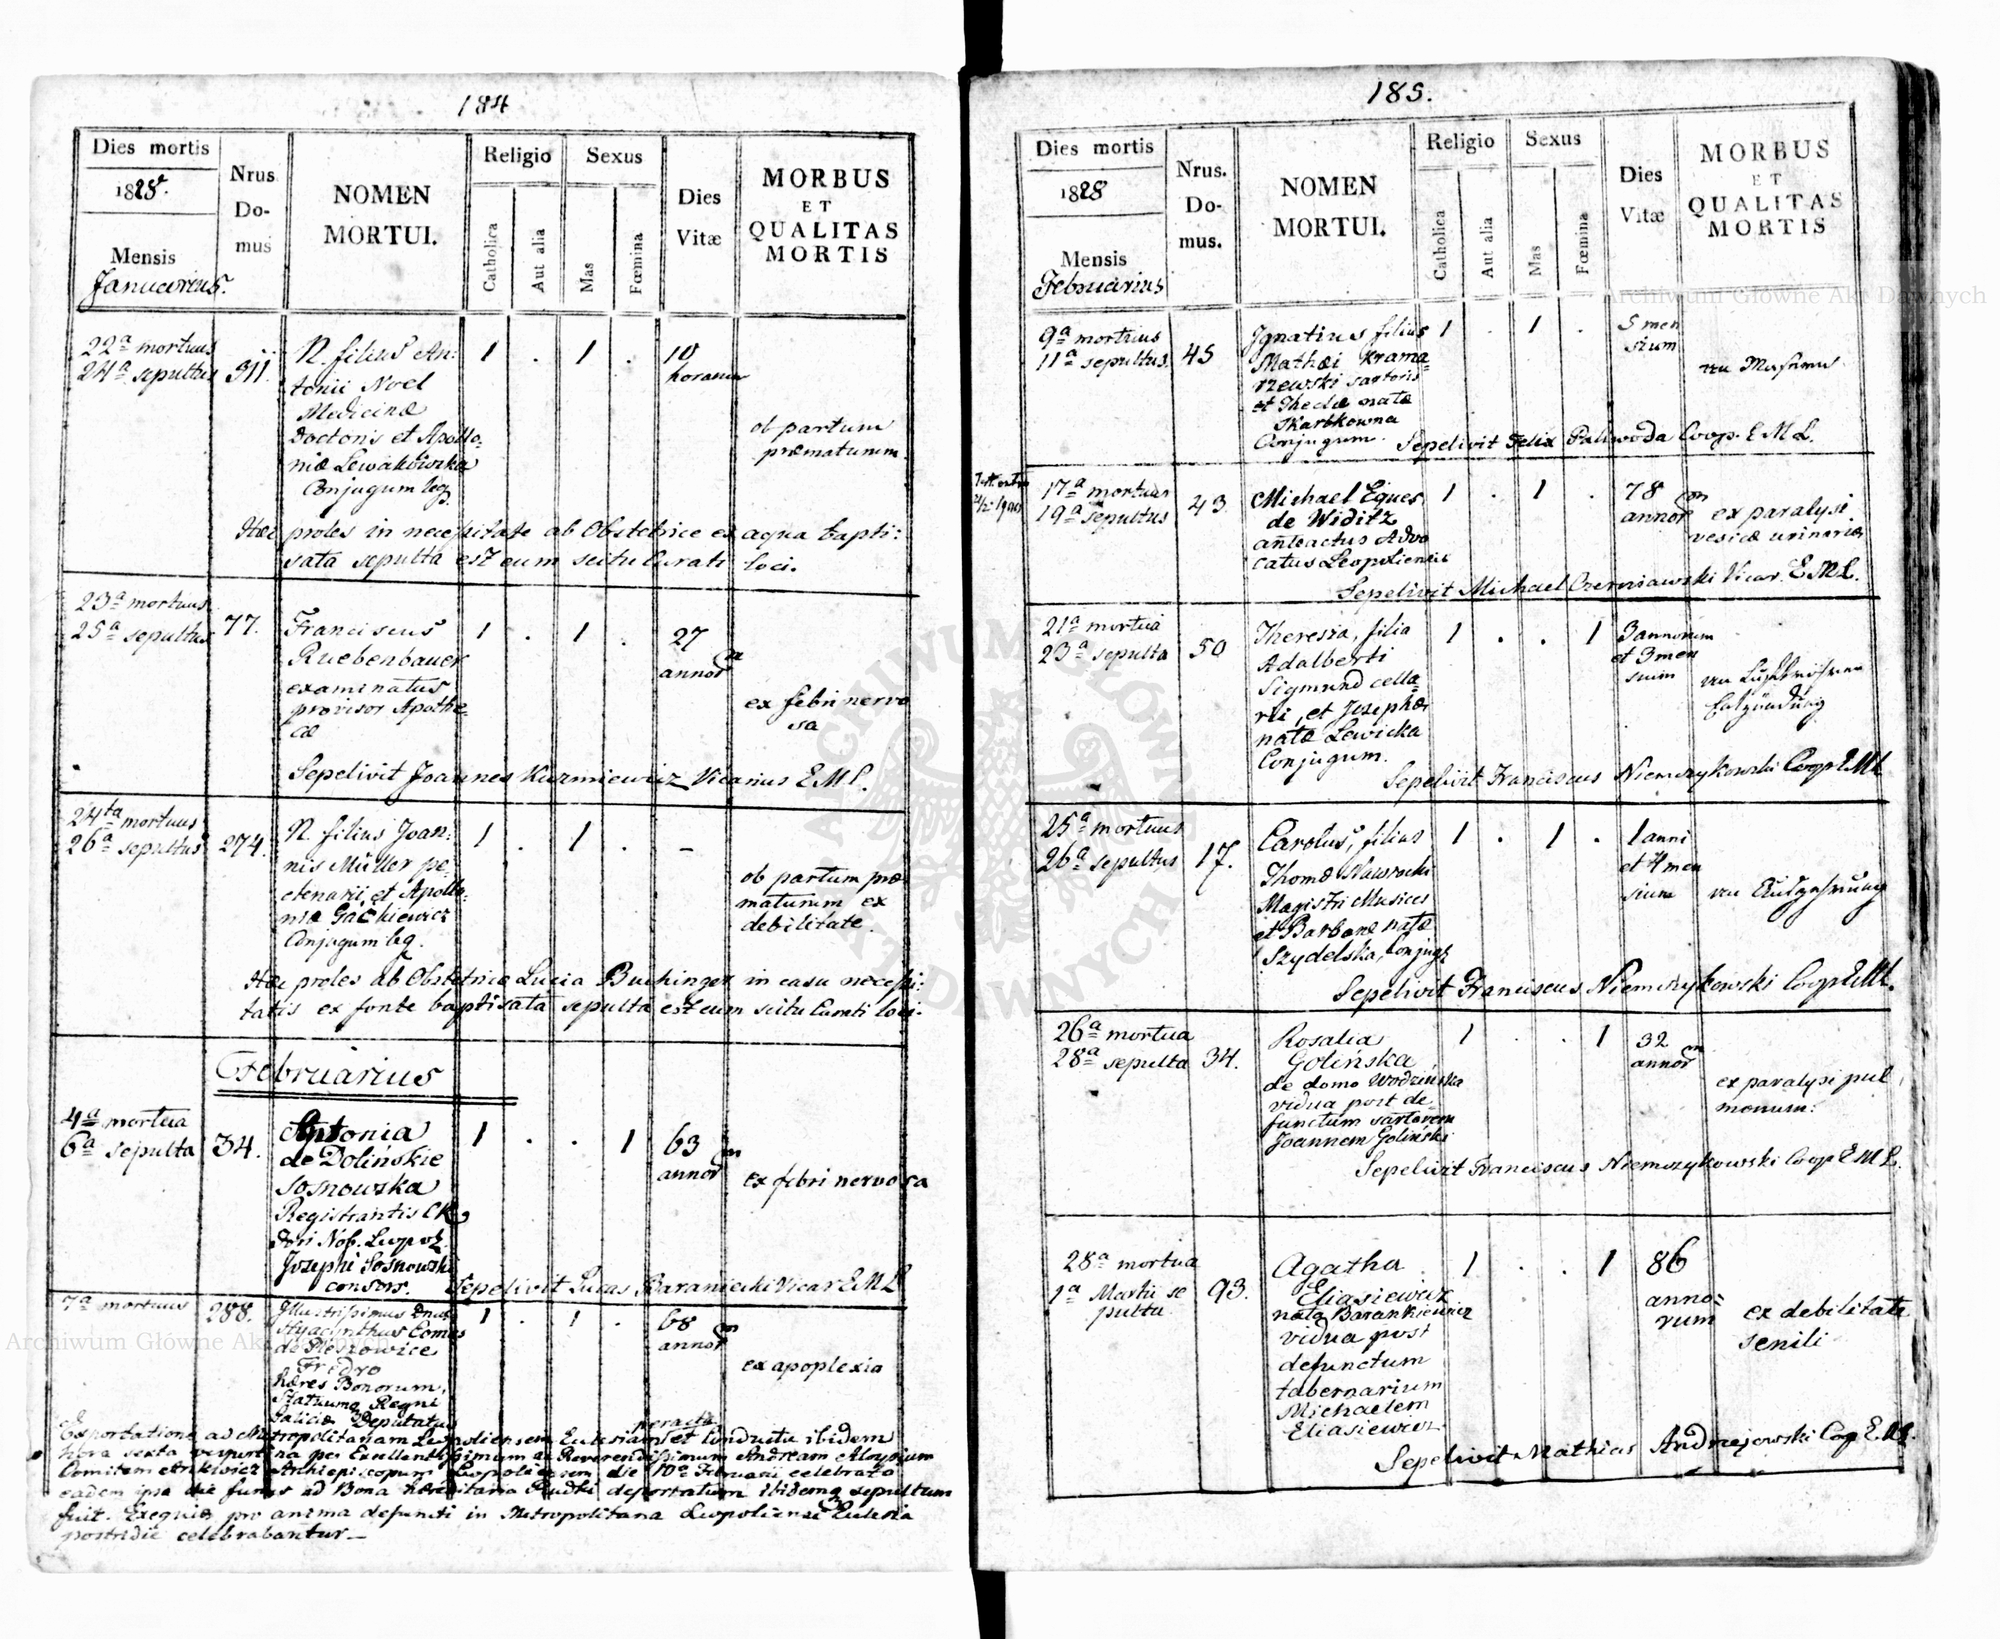 184
Dies mortis
1828.
Mensis
Januarius.
Nrus
Do-
mus
NOMEN
MORTUI.
Religio
Catholica
Aut alia
Sexus
Mas
Fœmina
Dies
Vitæ
MORBUS
ET
QUALITAS
MORTIS
22a mortuus
24a sepultus
311.
N. filius An:
tonii Noel
Medicinæ
Doctoris et Apollo:
niæ Lewakowska
Conjugum leg.
1 . 1 .
10
horarum
ob partum
præmaturum
Hæc proles in necessitate ab Obstetrice ex aqua bapti:
sata sepulta est cum scitu Curati loci.
23a mortuus
25a sepultus
77.
Franciscus
Ruebenbauer
examinatus
provisor Apothe
cæ
1 . 1 .
27
annorum
ex febri nervo
sa
Sepelivit Joannes Kuzmiewicz Vicarius E.M.L.
24ta mortuus
26a sepultus
274.
N. filius Joan:
nis Müller pe:
ctenarii, et Apollo:
niæ Gackiewicz
Conjugum leg.
1 . 1 .
–
ob partum præ
maturum ex
debilitate.
Hæc proles ab Obstetrice Lucia Buchinger in casu necessi:
tatis ex fonte baptisata sepulta est cum scitu Curati loci.
Februarius
4a mortua
6a sepulta
34.
Antonia
de Dolińskie
Sosnowska
Registrantis CR
Fori Nob. Leopol.
Josephi Sosnowski
consors.
1 . . 1
63
annorum
ex febri nervosa
Sepelivit Lucas Baraniecki Vicar E M L
7a mortuus
288.
Illustrissimus Dnus
Hyacinthus Comes
de Pleszowice
Fredro
hæres Bonorum,
Statuumq Regni
Galiciæ Deputatus
1 . 1 .
68
annorum
ex apoplexia
peracta
Exportatione ad Metropolitanam Leopoliensem Ecclesiam et conductu ibidem
hora sexta vespertina per Excellentissimum ac Reverendissimum Andream Aloysium
Comitem Ankwicz Archiepiscopum Leopoliensem die 10a Februarii celebrato
eadem ipsa die funus ad Bona hæreditaria Rudki deportatum ibidemq sepultum
fuit. Exequiæ pro anima defuncti in Metropolitana Leopoliensi Ecclesia
postridie celebrabantur.
185.
Dies mortis
1828
Mensis
Februarius
Nrus.
Do-
mus.
NOMEN
MORTUI.
Religio
Catholica
Aut alia
Sexus
Mas
Fœmina
Dies
Vitæ
MORBUS
ET
QUALITAS
MORTIS
9a mortuus
11a sepultus
45
Ignatius filius
Mathæi Krama
rzewski sartoris
et Theclæ natæ
Skarbkowna
Conjugum.
1 . 1 .
5 men
sium
Sepelivit Felix Paliwoda Coop. E M L.
17a mortuus
19a sepultus
43
Michael Eques
de Widitz
anteactus Advo
catus Leopoliensis
1 . 1 .
78
annorum
ex paralysi
vesicæ urinariæ
Sepelivit Michael Czerniawski Vicar. E M L.
21a mortua
23a sepulta
50
Theresia, filia
Adalberti
Sigmund cella=
rii, et Josephæ
natæ Lewicka
Conjugum.
1 . . 1
3 annorum
et 3 men
sium
Sepelivit Franciscus Niemczykowski Coop E M L
25a mortuus
26a sepultus
17.
Carolus, filius
Thomæ Nawrocki
Magistri Musices
et Barbaræ natæ
Szydelska, Conjug
1 . 1 .
1 anni
et 4 men
sium
Sepelivit Franciscus Niemczykowski Coop E M L.
26a mortua
28a sepulta
34.
Rosalia
Golińska
de domo Wodzińska
vidua post de
functum sartorem
Joannem Goliński
1 . . 1
32
annorum
ex paralysi pul
monum.
Sepelivit Franciscus Niemczykowski Coop E M L.
28a mortua
1a Martii se
pulta
93.
Agatha
Eliasiewicz
nata Barankiewicz
vidua post
defunctum
tabernarium
Michaelem
Eliasiewicz
1 . . 1
86
anno=
rum
ex debilitate
senili
Sepelivit Mathias Andrzejowski Coop E. M L.
Archiwum Główne Akt Dawnych
ARCHIWUM GŁÓWNE AKT DAWNYCH
Archiwum Główne Akt Dawnych